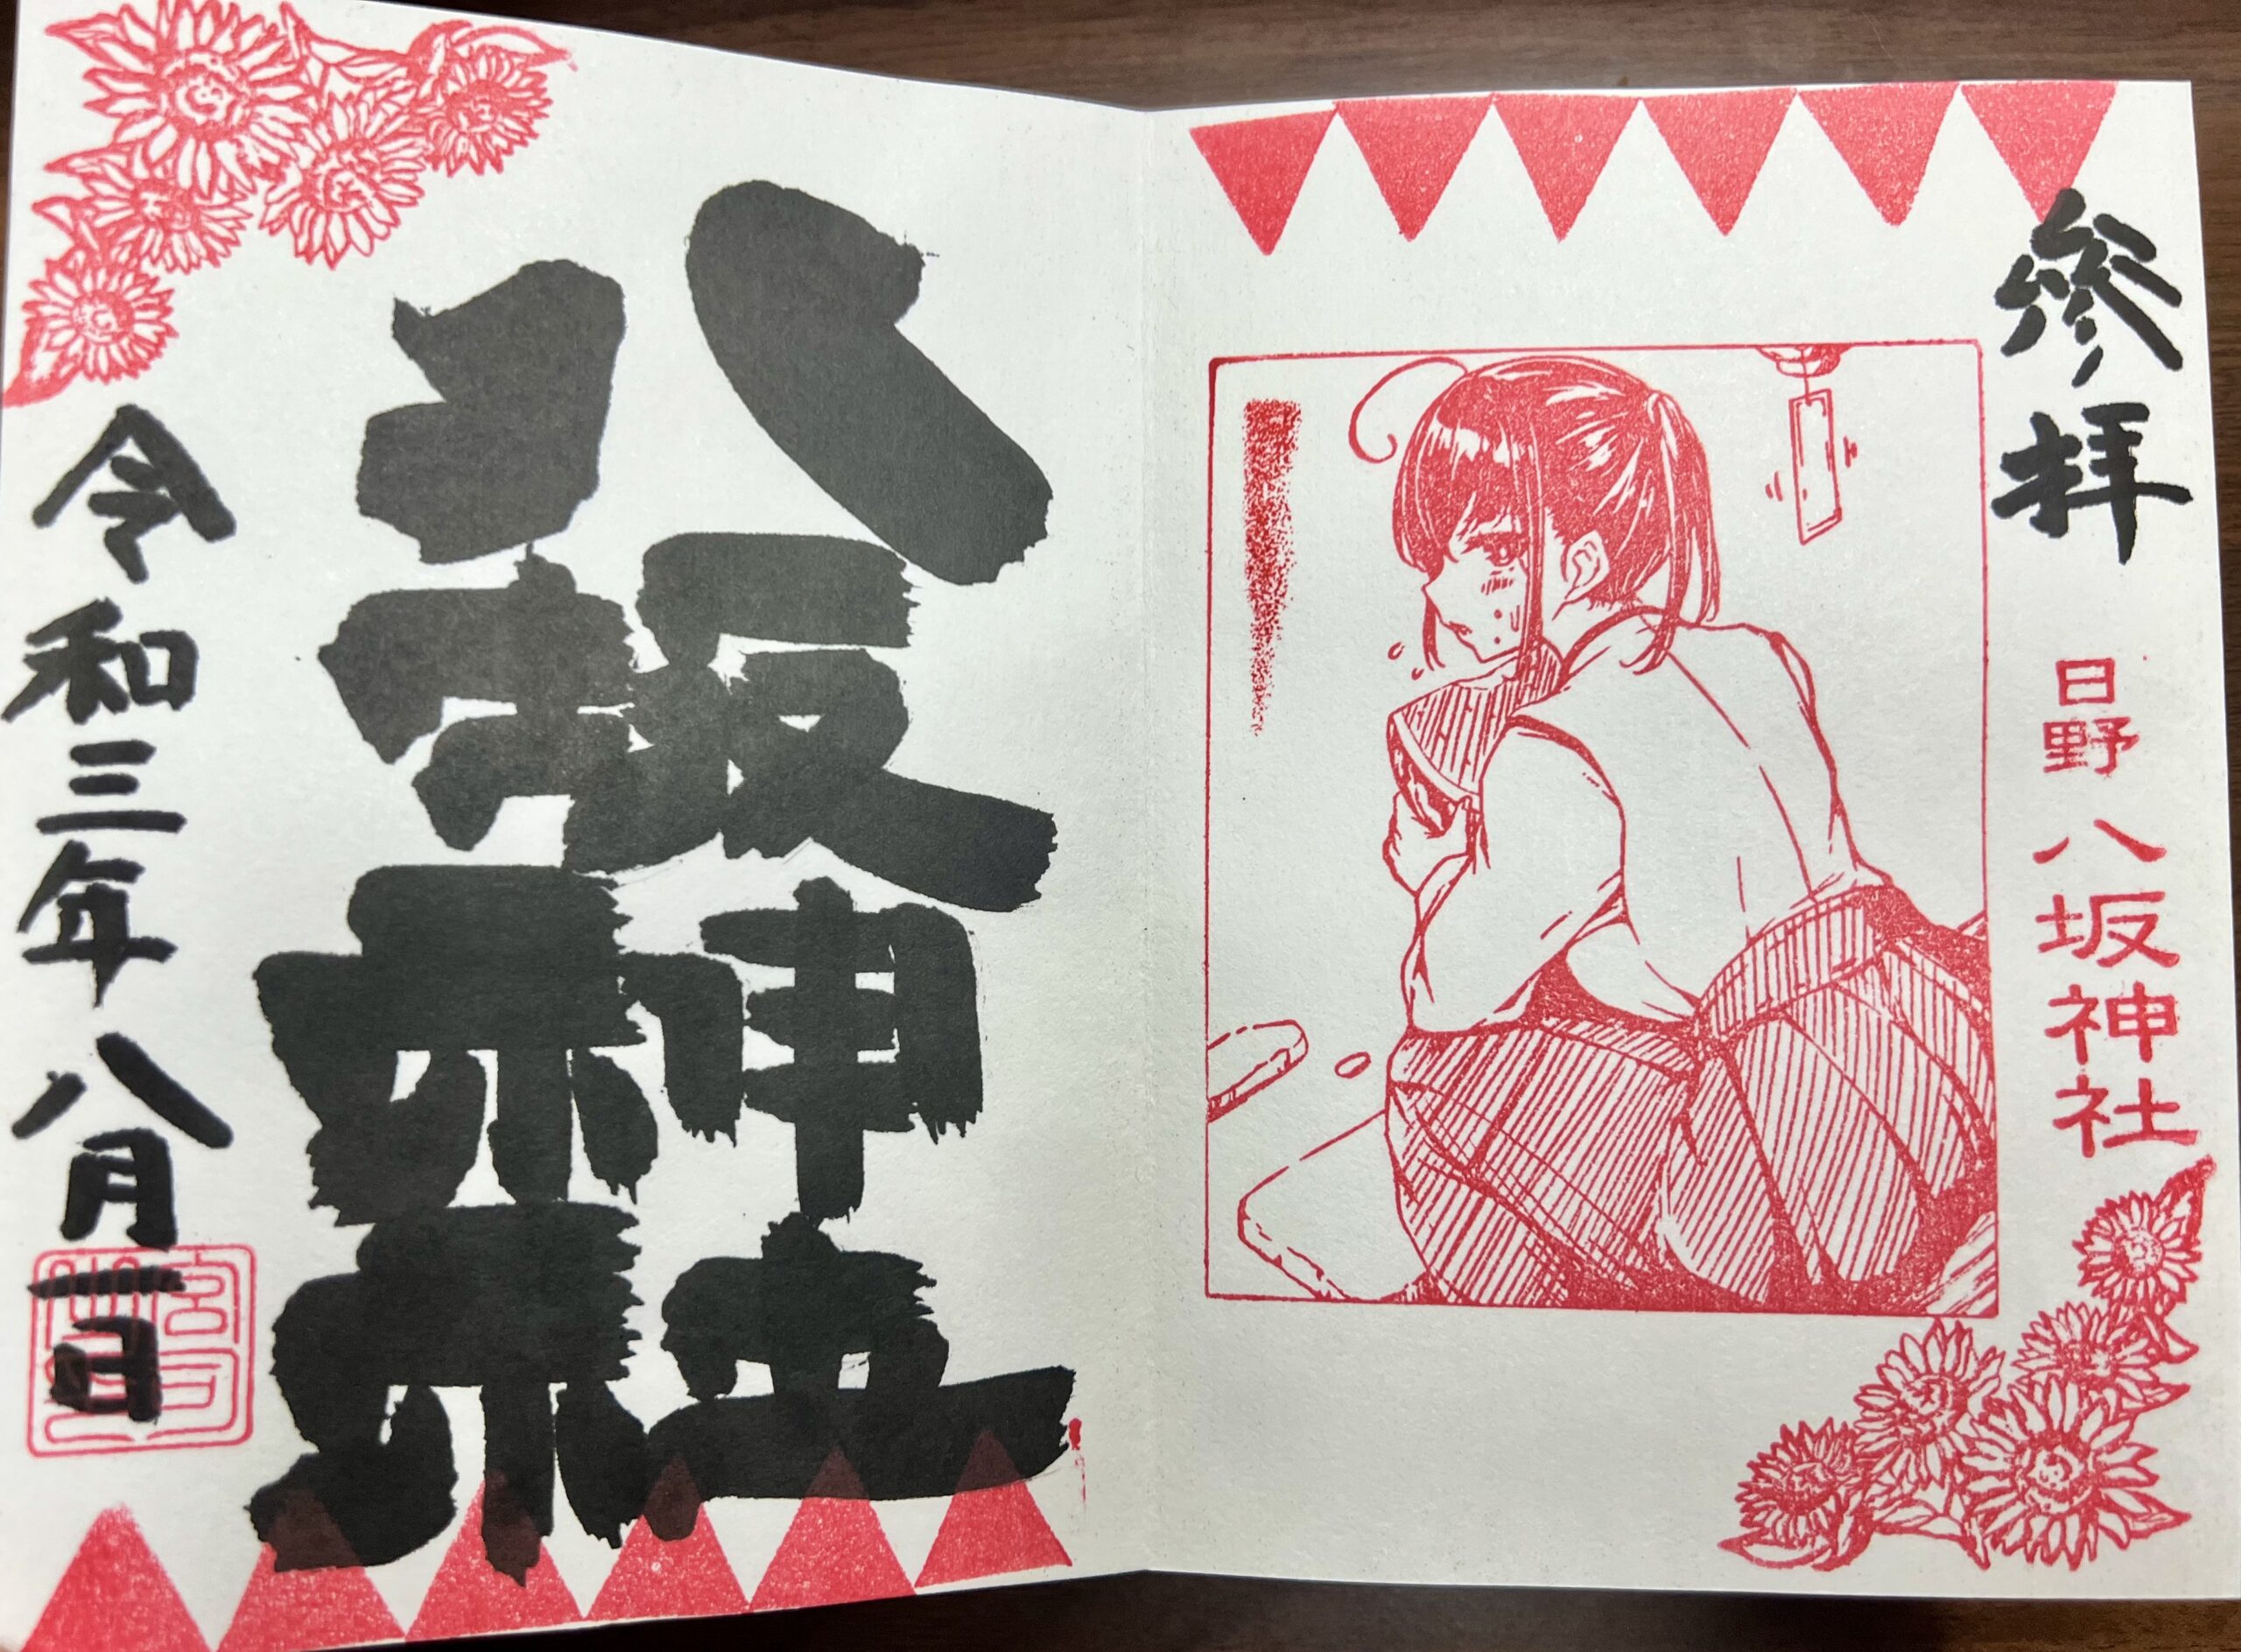 参拝
日野
八坂神社
八坂神社
令和三年八月一日
宮司